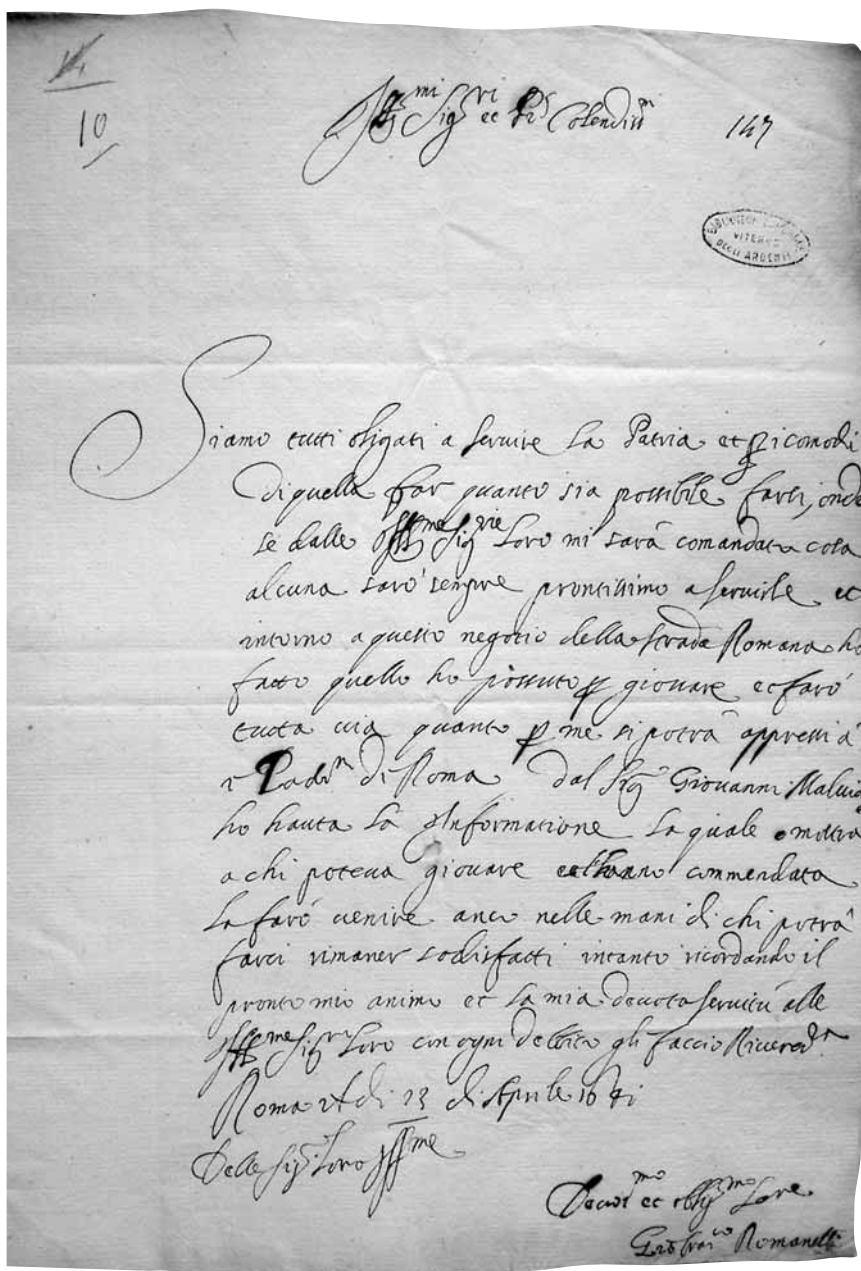 10
Ill.mi Sig.ri et P.ri Colendiss.mi
147
BIBLIOTECA COMUNALE
VITERBO
DEGLI ARDENTI
Siamo tutti obligati a servire la Patria et p i comodi
di quella far quanto sia possibile farli, onde
se dalle Ill.me Sig.rie Loro mi sarà comandata cosa
alcuna sarò sempre prontissimo a servirle et
intorno a questo negotio della strada Romana ho
fatto quello ho possuto p giovare et farò
tutta via quanto p me si potrà appressi a
Padn di Roma dal Sig. Giovanni Malvic
ho hauta la Informatione la quale o mostra
a chi poteva giovare et hanno commendata
la farò venire anco nelle mani di chi potrà
farci rimaner sodisfatti intanto ricordando il
pronto mio animo et la mia devota servitù alle
Ill.me Sig.rie Loro con ogni debito gli faccio River.a
Roma di 13 di Aprile 1641
Delle Sig. Loro Ill.me
Devot.mo et oblig.mo Ser.e
Gio Fran.co Romanelli